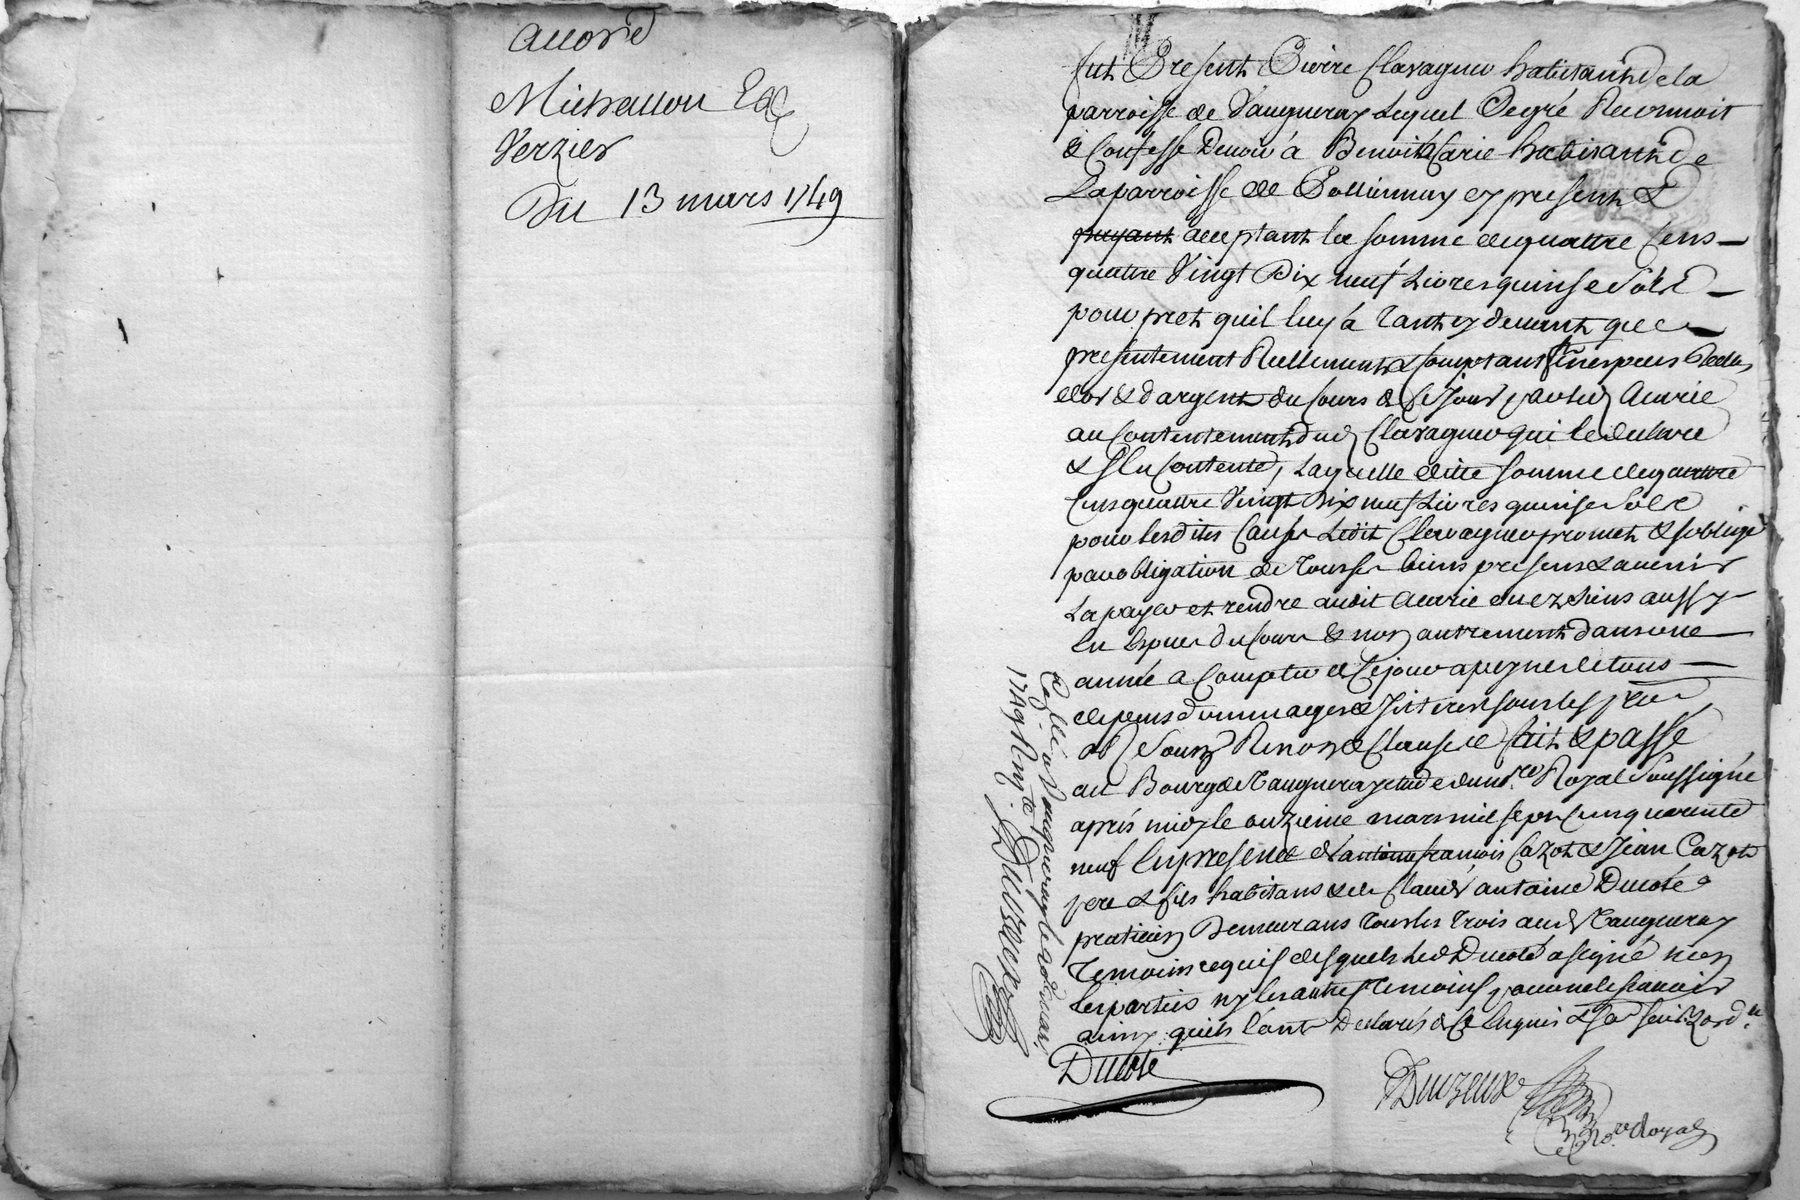 accord
Michallon &
Verzier
Du 13 mars 1749
fut Present Pierre Clavagneu habitant de la
parroisse de Vaugneray lequel Degré Reconnoit
& Confesse Devoir à Benoit Carie habitant de
La parroisse de Pollionnay cy present &
payant acceptant la somme de quattre Cens
quattre Vingt Dix neuf Livres quinse Sols
pour pret quil luy à tant cy devant que
presentement Reellement & Comptant En especes
dor & dargent du Cours de Ce Jour par led
au Contentement dud Clavagneu qui le declare
& sen Contente, Laquelle ditte somme de quattre
Cens quattre Vingt Dix neuf Livres quinse Sols
pour lesdites Causes Ledit Clavagneu promet & soblige
par obligation de Tous ses biens presens & avenir
La payer et rendre audit Carie ou ez siens aussy
En Especes du Cours & non autrement dans une
année a Compter de Ce jour a peyne de tous
depens dommages & Interest sous les
Soum Renon & Clauses Fait & passé
au Bourg de Vaugneray etude du no.re Royal Soussigné
après midy le onzieme mars mil sept Cens quarente
neuf En presence de antoine francois Cazot & Jean Cazot
pere & fils habitans & de Claude antoine Ducoté
praticien Demeurans Tous les trois aud Vaugneray
Temoins requis desquels Led Ducoté a signé non
les parties ny les autres Temoins pour ne le scavoir
ainsy quils l'ont Declarés de Ce Enquis &
Ducoté
Duizeux
No.re Royal
Collé à Vaugneray le mars
1749
Duizeux